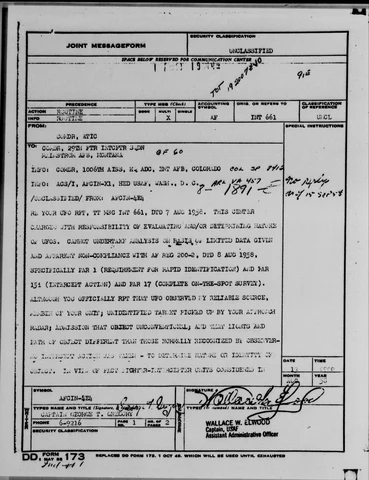 JOINT MESSAGEFORM
SECURITY CLASSIFICATION
UNCLASSIFIED
SPACE BELOW RESERVED FOR COMMUNICATION CENTER
PRECEDENCE
TYPE MSG (Check)
ACCOUNTING SYMBOL
ORIG. OR REFERS TO
CLASSIFICATION OF REFERENCE
ACTION ROUTINE
BOOK MULTI SINGLE
INFO ROUTINE
X AF INT 661 UNCL
FROM:
SPECIAL INSTRUCTIONS
COMDR, ATIC
TO:
COMDR, 29TH FTR INTCPTR SQDN
MALMSTROM AFB, MONTANA
INFO: COMDR, 1006TH AISS, ADC, ENT AFB, COLORADO
INFO: ACS/I, AFCIN-X1, HEQ USAF, WASH., D. C.
/UNCLASSIFIED/ FROM: AFCIN-4E4
RE YOUR UFO RPT, TT MSG INT 661, DTD 7 AUG 1958. THIS CENTER
CHARGED WITH RESPONSIBILITY OF EVALUATING AND/OR DETERMINING NATURE
OF UFOS. CANNOT UNDERTAKE ANALYSIS ON BASIS OF LIMITED DATA GIVEN
AND APPARENT NON-COMPLIANCE WITH AF REG 200-2, DTD 8 AUG 1958,
SPECIFICALLY PAR 1 (REQUIREMENT FOR RAPID IDENTIFICATION) AND PAR
(INTERCEPT ACTION) AND PAR 17 (COMPLETE ON-THE-SPOT SURVEY).
ALTHOUGH YOU OFFICIALLY RPT THAT UFO OBSERVED BY RELIABLE SOURCE,
OF YOUR UNIT; UNIDENTIFIED TARGET PICKED UP BY YOUR APPROACH
RADAR; ADMISSION THAT OBJECT UNCONVENTIONAL; AND THAT LIGHTS AND
PATH OF OBJECT DIFFERENT THAN THOSE NORMALLY RECOGNIZED BY OBSERVER-
NO ACTION TAKEN - TO DETERMINE NATURE OR IDENTITY OF
OBJECT. IN VIEW OF FACT FIGHTER-INTERCEPTER UNITS CONSIDERED IN
DATE
TIME
MONTH
YEAR
SYMBOL
AFCIN-4E4
TYPED NAME AND TITLE (Signature, if required)
CAPTAIN GEORGE T. GREGORY
PHONE 6-9216
PAGE NR. 1
NR. OF PAGES 2
SECURITY CLASSIFICATION
SIGNATURE
TYPED (or stamped) NAME AND TITLE
WALLACE W. ELWOOD
Captain, USAF
Assistant Administrative Officer
DD FORM 173
REPLACES DD FORM 173, 1 OCT 49, WHICH WILL BE USED UNTIL EXHAUSTED